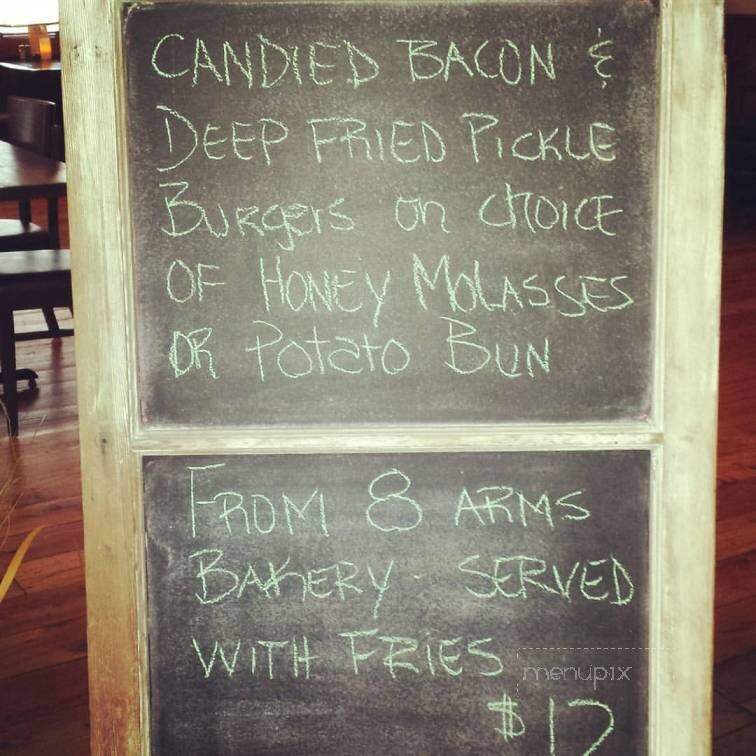 CANDIED BACON &
DEEP FRIED PICKLE
BURGERS ON CHOICE
OF HONEY MOLASSES
OR POTATO BUN
FROM 8 ARMS
BAKERY - SERVED
WITH FRIES
menupix
$12